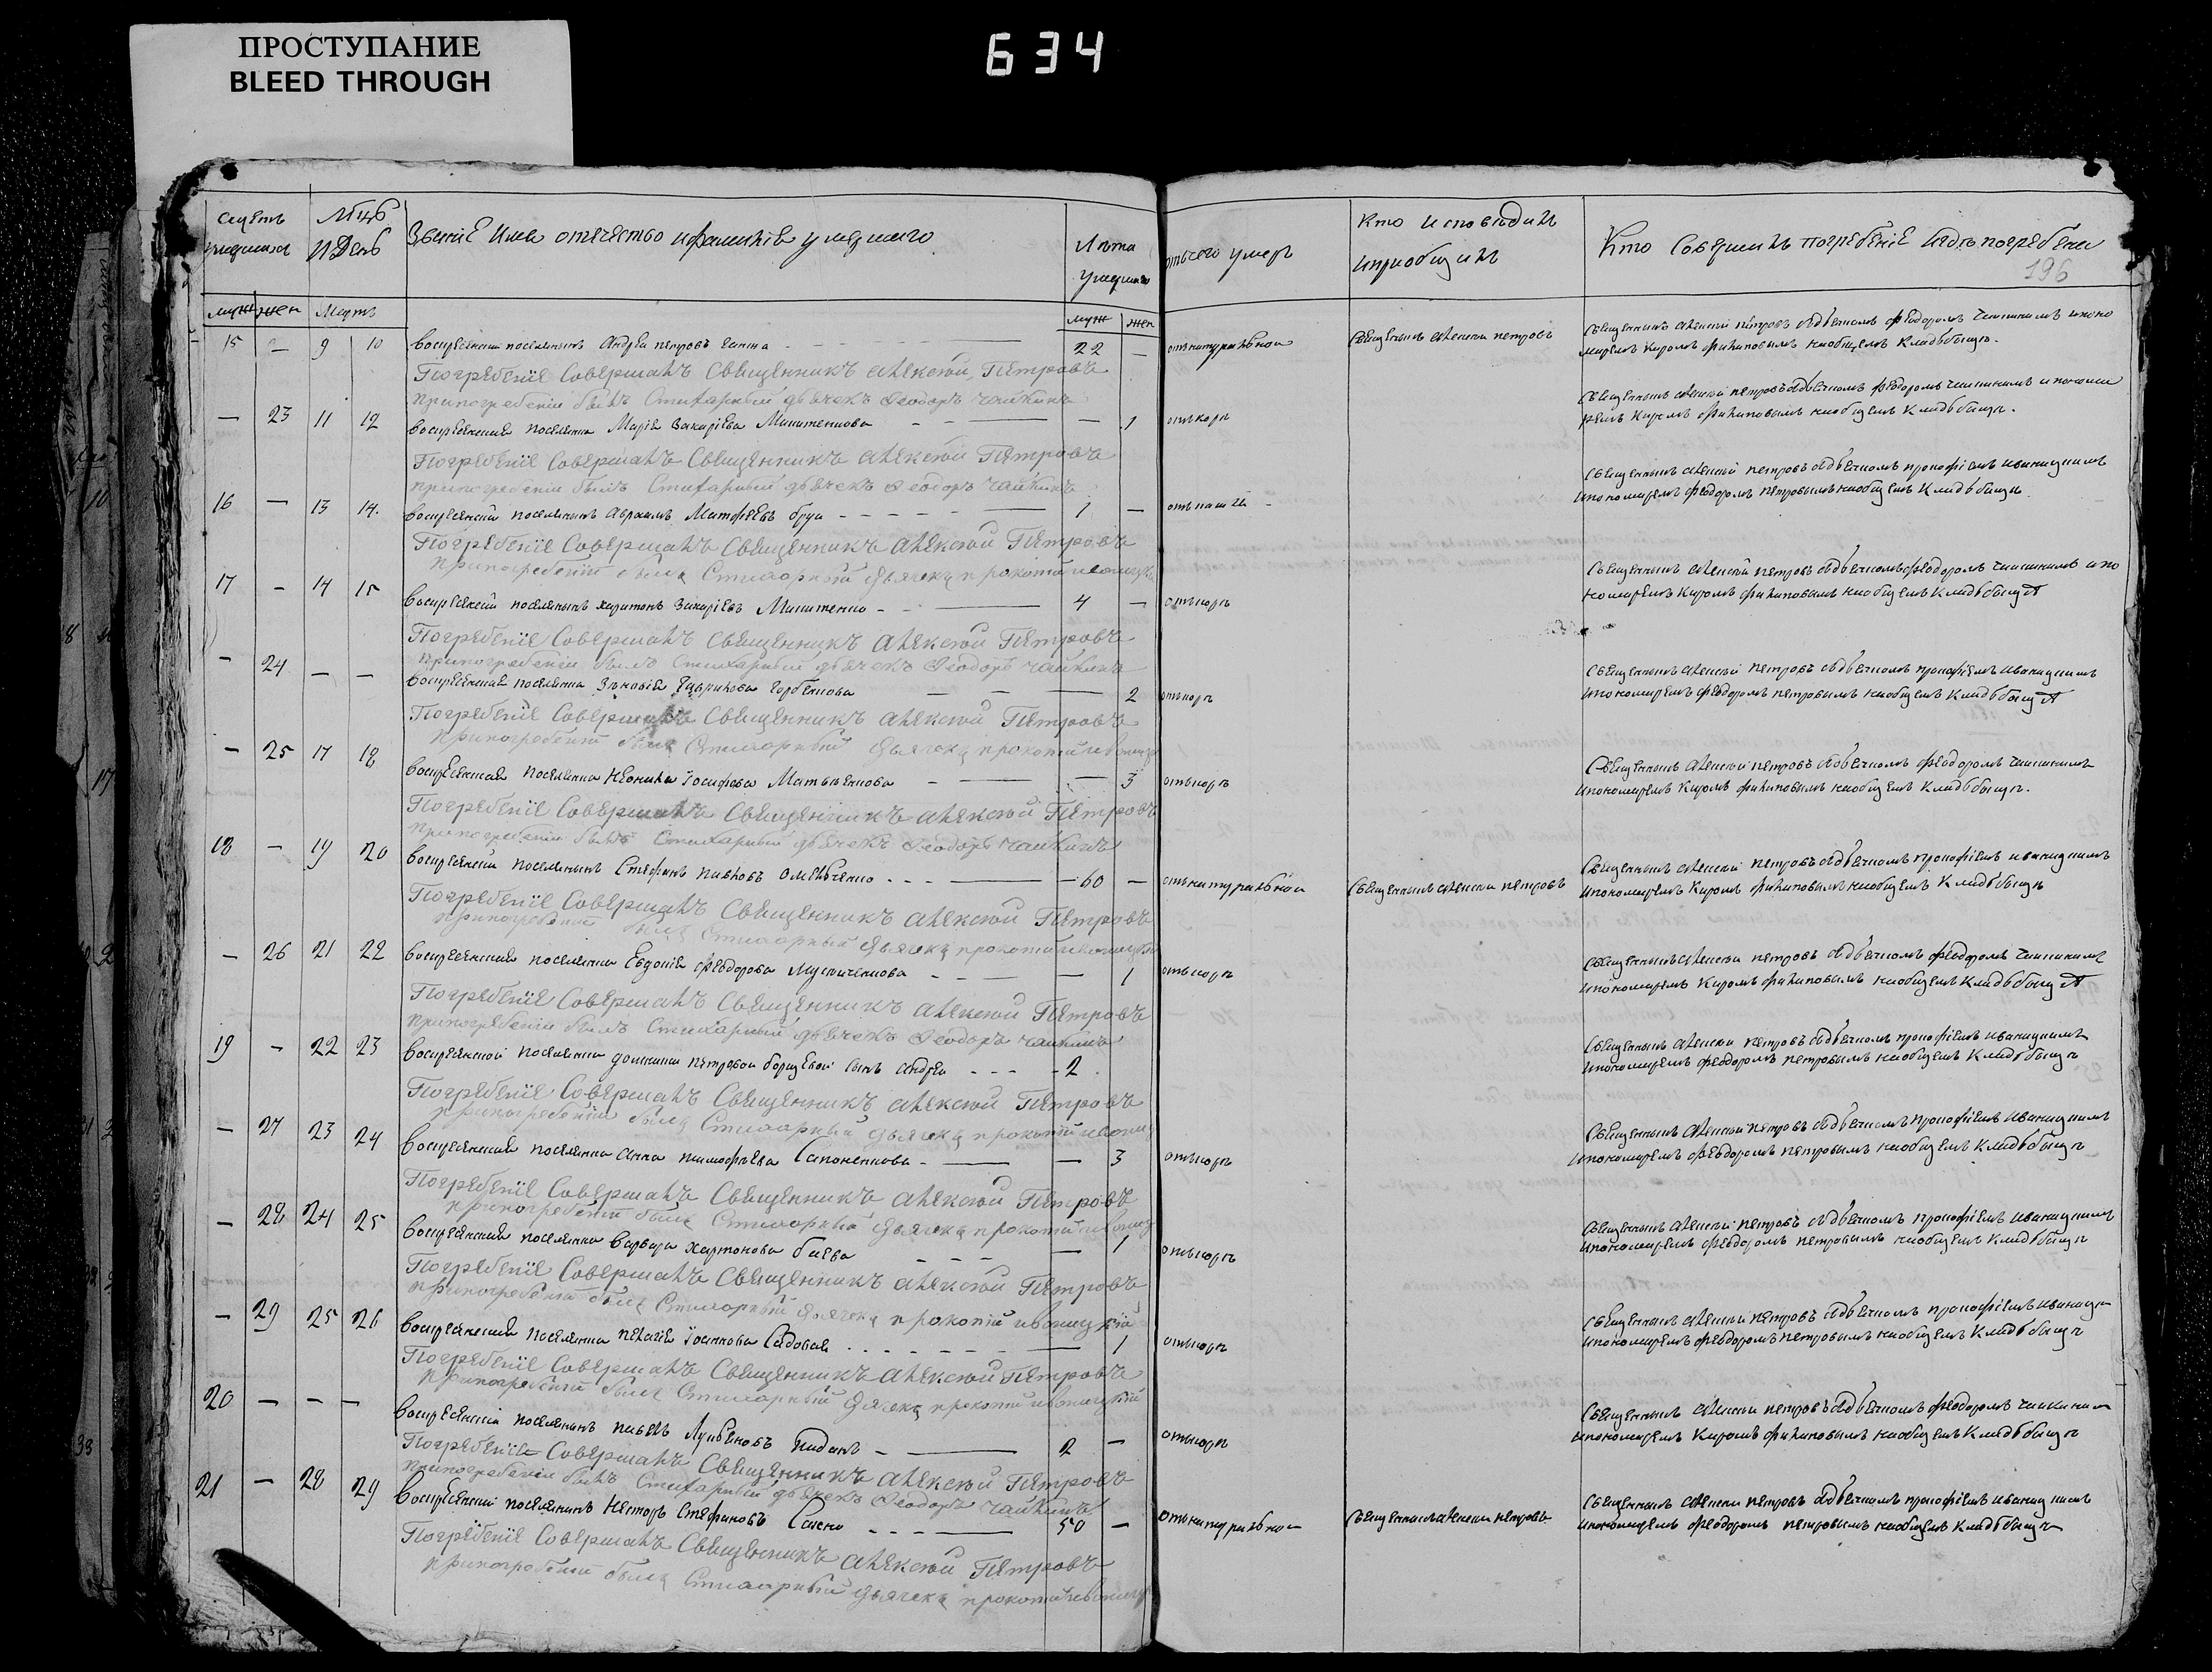 ПРОСТУПАНИЕ
BLEED THROUGH
634
Счетъ умершихъ
Мцъ И День
Званіе Имя отечество ифамилія умершаго
Лѣта умершаго
отъчего умеръ
Кто исповѣдилъ ипріобщилъ
Кто Совершилъ погребеніе игдѣ погребены
196
муж жен Мартъ муж жен
15 — 9 10 Воскресенскій поселянинъ Андрей петровъ — 22 — отънатуральной Священникъ Алексѣй петровъ
Священникъ Алексѣй петровъ здьячкомъ Феодоромъ Чайкинымъ ипоно
маремъ Киромъ Филиповымъ наобщемъ Кладбыщѣ.
Погребеніе Совершалъ Священникъ Алексѣй Петровъ
припогребеніи былъ Стихарный дьячекъ Феодоръ Чайкинъ
— 23 11 12 Воскресенская поселянка Марія Захаріева — — 1 откори
Священникъ Алексѣй петровъ здьячкомъ Феодоромъ Чайкинымъ ипонома
ремъ Киромъ Филиповымъ наобщемъ Кладбыщѣ.
Погребеніе Совершалъ Священникъ Алексѣй Петровъ
припогребеніи былъ Стихарный дьячекъ Феодоръ Чайкинъ
16 — 13 14. Воскресенскій поселянинъ Авраамъ Матфеевъ — 1 —
Священникъ Алексѣй петровъ здьячкомъ прокофіемъ иваницкимъ
ипономаремъ Феодоромъ петровымъ наобщемъ Кладбыщѣ
Погребеніе Совершалъ Священникъ Алексѣй Петровъ
припогребеніи былъ Стихарный Дьячекъ прокопій иваницкій
17 — 14 15 Воскресенскій поселянинъ харитонъ Захаріевъ — 4 — откори
Священникъ Алексѣй петровъ здьячкомъ Феодоромъ Чайкинымъ ипо
номаремъ Киромъ Филиповымъ наобщемъ Кладбыщѣ
Погребеніе Совершалъ Священникъ Алексѣй Петровъ
припогребеніи былъ Стихарный дьячекъ Феодоръ Чайкинъ
— 24 — — Воскресенская поселянка Зѣновія Гаврилова — 2 откори
Священникъ Алексѣй петровъ здьячкомъ прокофіемъ иваницкимъ
ипономаремъ Феодоромъ петровымъ наобщемъ Кладбыщѣ
Погребеніе Совершалъ Священникъ Алексѣй Петровъ
припогребеніи былъ Стихарный Дьячекъ прокопій иваницкій
— 25 17 18 Воскресенская поселянка Іосифова — — 3 откори
Священникъ Алексѣй петровъ здьячкомъ Феодоромъ Чайкинымъ
ипономаремъ Киромъ Филиповымъ наобщемъ Кладбыщѣ.
Погребеніе Совершалъ Священникъ Алексѣй Петровъ
припогребеніи былъ Стихарный дьячекъ Феодоръ Чайкинъ
18 — 19 20 Воскресенскій поселянинъ Стефанъ павловъ Омельченко — 60 — отънатуральной Священникъ Алексѣй петровъ
Священникъ Алексѣй петровъ здьячкомъ прокофіемъ иваницкимъ
ипономаремъ Киромъ Филиповымъ наобщемъ Кладбыщѣ
Погребеніе Совершалъ Священникъ Алексѣй Петровъ
припогребеніи былъ Стихарный Дьячекъ прокопій иваницкій
— 26 21 22 Воскресенская поселянка Евдокія Феодорова — — 1 откори
Священникъ Алексѣй петровъ здьячкомъ Феодоромъ Чайкинымъ
ипономаремъ Киромъ Филиповымъ наобщемъ Кладбыщѣ
Погребеніе Совершалъ Священникъ Алексѣй Петровъ
припогребеніи былъ Стихарный дьячекъ Феодоръ Чайкинъ
19 — 22 23 Воскресенской поселянки домникіи петровой борщевой сынъ Андрей — 2
Священникъ Алексѣй петровъ здьячкомъ прокофіемъ иваницкимъ
ипономаремъ Феодоромъ петровымъ наобщемъ Кладбыщѣ
Погребеніе Совершалъ Священникъ Алексѣй Петровъ
припогребеніи былъ Стихарный Дьячекъ прокопій иваницкій
— 27 23 24 Воскресенская поселянка Анна тимофѣева Сапоненкова — — 3 откори
Священникъ Алексѣй петровъ здьячкомъ прокофіемъ иваницкимъ
ипономаремъ Феодоромъ петровымъ наобщемъ Кладбыщѣ
Погребеніе Совершалъ Священникъ Алексѣй Петровъ
припогребеніи былъ Стихарный Дьячекъ прокопій иваницкій
— 28 24 25 Воскресенская поселянка Варвара Харитонова — — 1 откори
Священникъ Алексѣй петровъ здьячкомъ прокофіемъ иваницкимъ
ипономаремъ Феодоромъ петровымъ наобщемъ Кладбыщѣ
Погребеніе Совершалъ Священникъ Алексѣй Петровъ
припогребеніи былъ Стихарный Дьячекъ прокопій иваницкій
— 29 25 26 Воскресенская поселянка пелагія Іоаннова Садовая — 1 откори
Священникъ Алексѣй петровъ здьячкомъ прокофіемъ иваницки
ипономаремъ Феодоромъ петровымъ наобщемъ Кладбыщѣ
Погребеніе Совершалъ Священникъ Алексѣй Петровъ
припогребеніи былъ Стихарный Дьячекъ прокопій иваницкій
20 — — — Воскресенскій поселянинъ павелъ — 2 — откори
Священникъ Алексѣй петровъ здьячкомъ Феодоромъ Чайкиним
ипономаремъ Киромъ Филиповымъ наобщемъ Кладбыщѣ
Погребеніе Совершалъ Священникъ Алексѣй Петровъ
припогребеніи былъ Стихарный дьячекъ Феодоръ Чайкинъ
21 — 28 29 Воскресенскій поселянинъ Несторъ Стефановъ — 50 — отънатуральной Священникъ Алексѣй петровъ
Священникъ Алексѣй петровъ здьячкомъ прокофіемъ иваницкимъ
ипономаремъ Феодоромъ петровымъ наобщемъ Кладбыщѣ
Погребеніе Совершалъ Священникъ Алексѣй Петровъ
припогребеніи былъ Стихарный Дьячекъ прокопій иваницкій